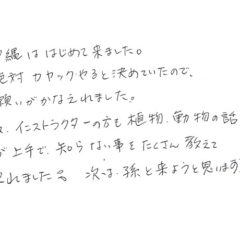 縄ははじめて来ました。
対カヤックやると決めていたので、
願いがかなえれました。
インストラクターの方も植物、動物の話
が上手で、知らない事をたくさん教えて
れました。次は、孫と来ようと思います